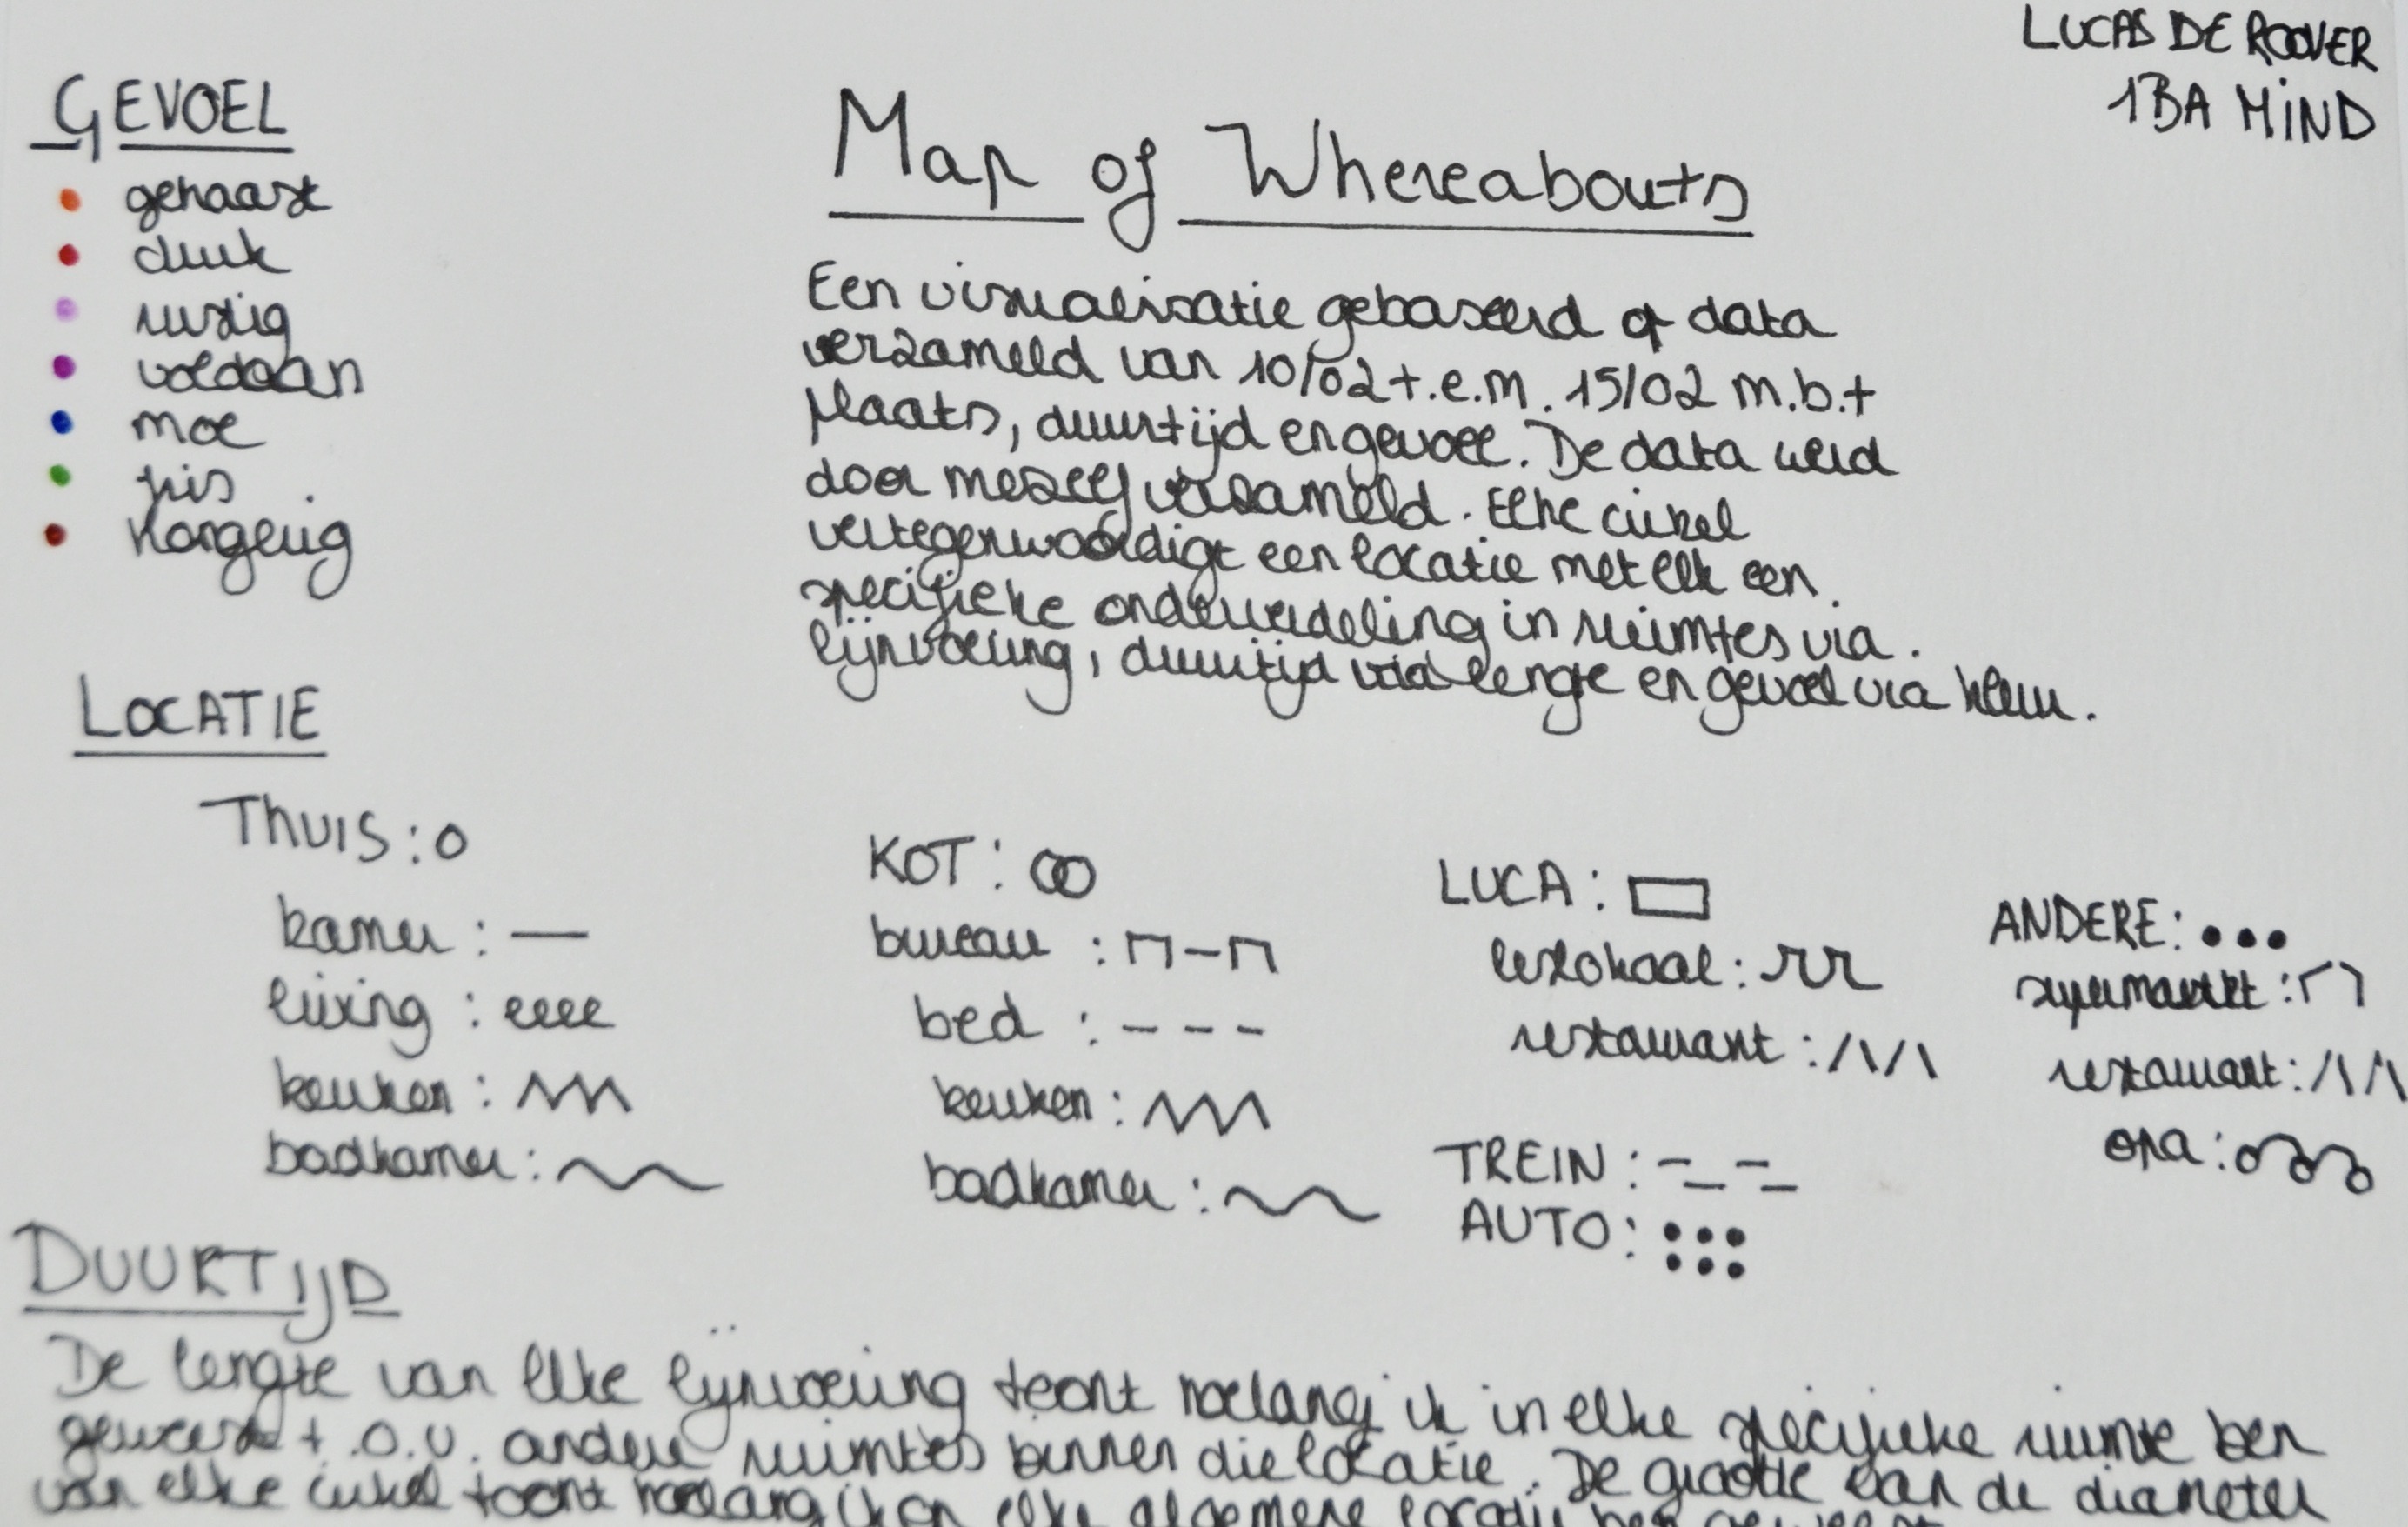 LUCAS DE ROOVER
1BA MIND
GEVOEL
gehaast
druk
rustig
voldaan
moe
fris
hongerig
Map of Whereabouts
Een visualisatie gebaseerd op data
verzameld van 10/02 t.e.m. 15/02 m.b.t
plaats, duurtijd en gevoel. De data werd
door mezelf verzameld. Elke cirkel
vertegenwoordigt een locatie met elk een
specifieke onderverdeling in ruimtes via
lijnvoering, duurtijd via lengte en gevoel via kleur.
LOCATIE
THUIS:
kamer:
living:
keuken:
badkamer:
KOT:
bureau:
bed:
keuken:
badkamer:
LUCA:
leslokaal:
restaurant:
TREIN:
AUTO:
ANDERE:
supermarkt:
restaurant:
opa:
DUURTIJD
De lengte van elke lijnvoering toont hoelang ik in elke specifieke ruimte ben
geweest t.o.v. andere ruimtes binnen die locatie. De grootte van de diameter
van elke cirkel toont hoelang ik op elke algemene locatie ben geweest